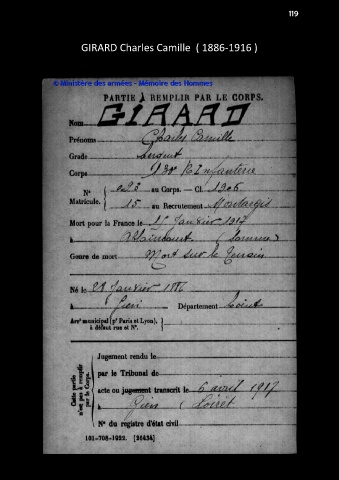 119
GIRARD Charles Camille ( 1886-1916 )
© Ministère des armées - Mémoire des Hommes
PARTIE À REMPLIR PAR LE CORPS.
Nom GIRARD
Prénoms Charles Camille
Grade Sergent
Corps Infanterie
N° 023 au Corps. — Cl. 1906
Matricule. 15 au Recrutement Montargis
Mort pour la France le Janvier 1917
à (Somme)
Genre de mort Mort sur le terrain
Né le Janvier 1886
à Gien Département Loiret
Arrt municipal (pr Paris et Lyon), à défaut rue et N°.
Cette partie n'est pas à remplir par le Corps.
Jugement rendu le
par le Tribunal de
acte ou jugement transcrit le 6 avril 1917
à Gien (Loiret
N° du registre d'état civil
101-708-1922. [26434]